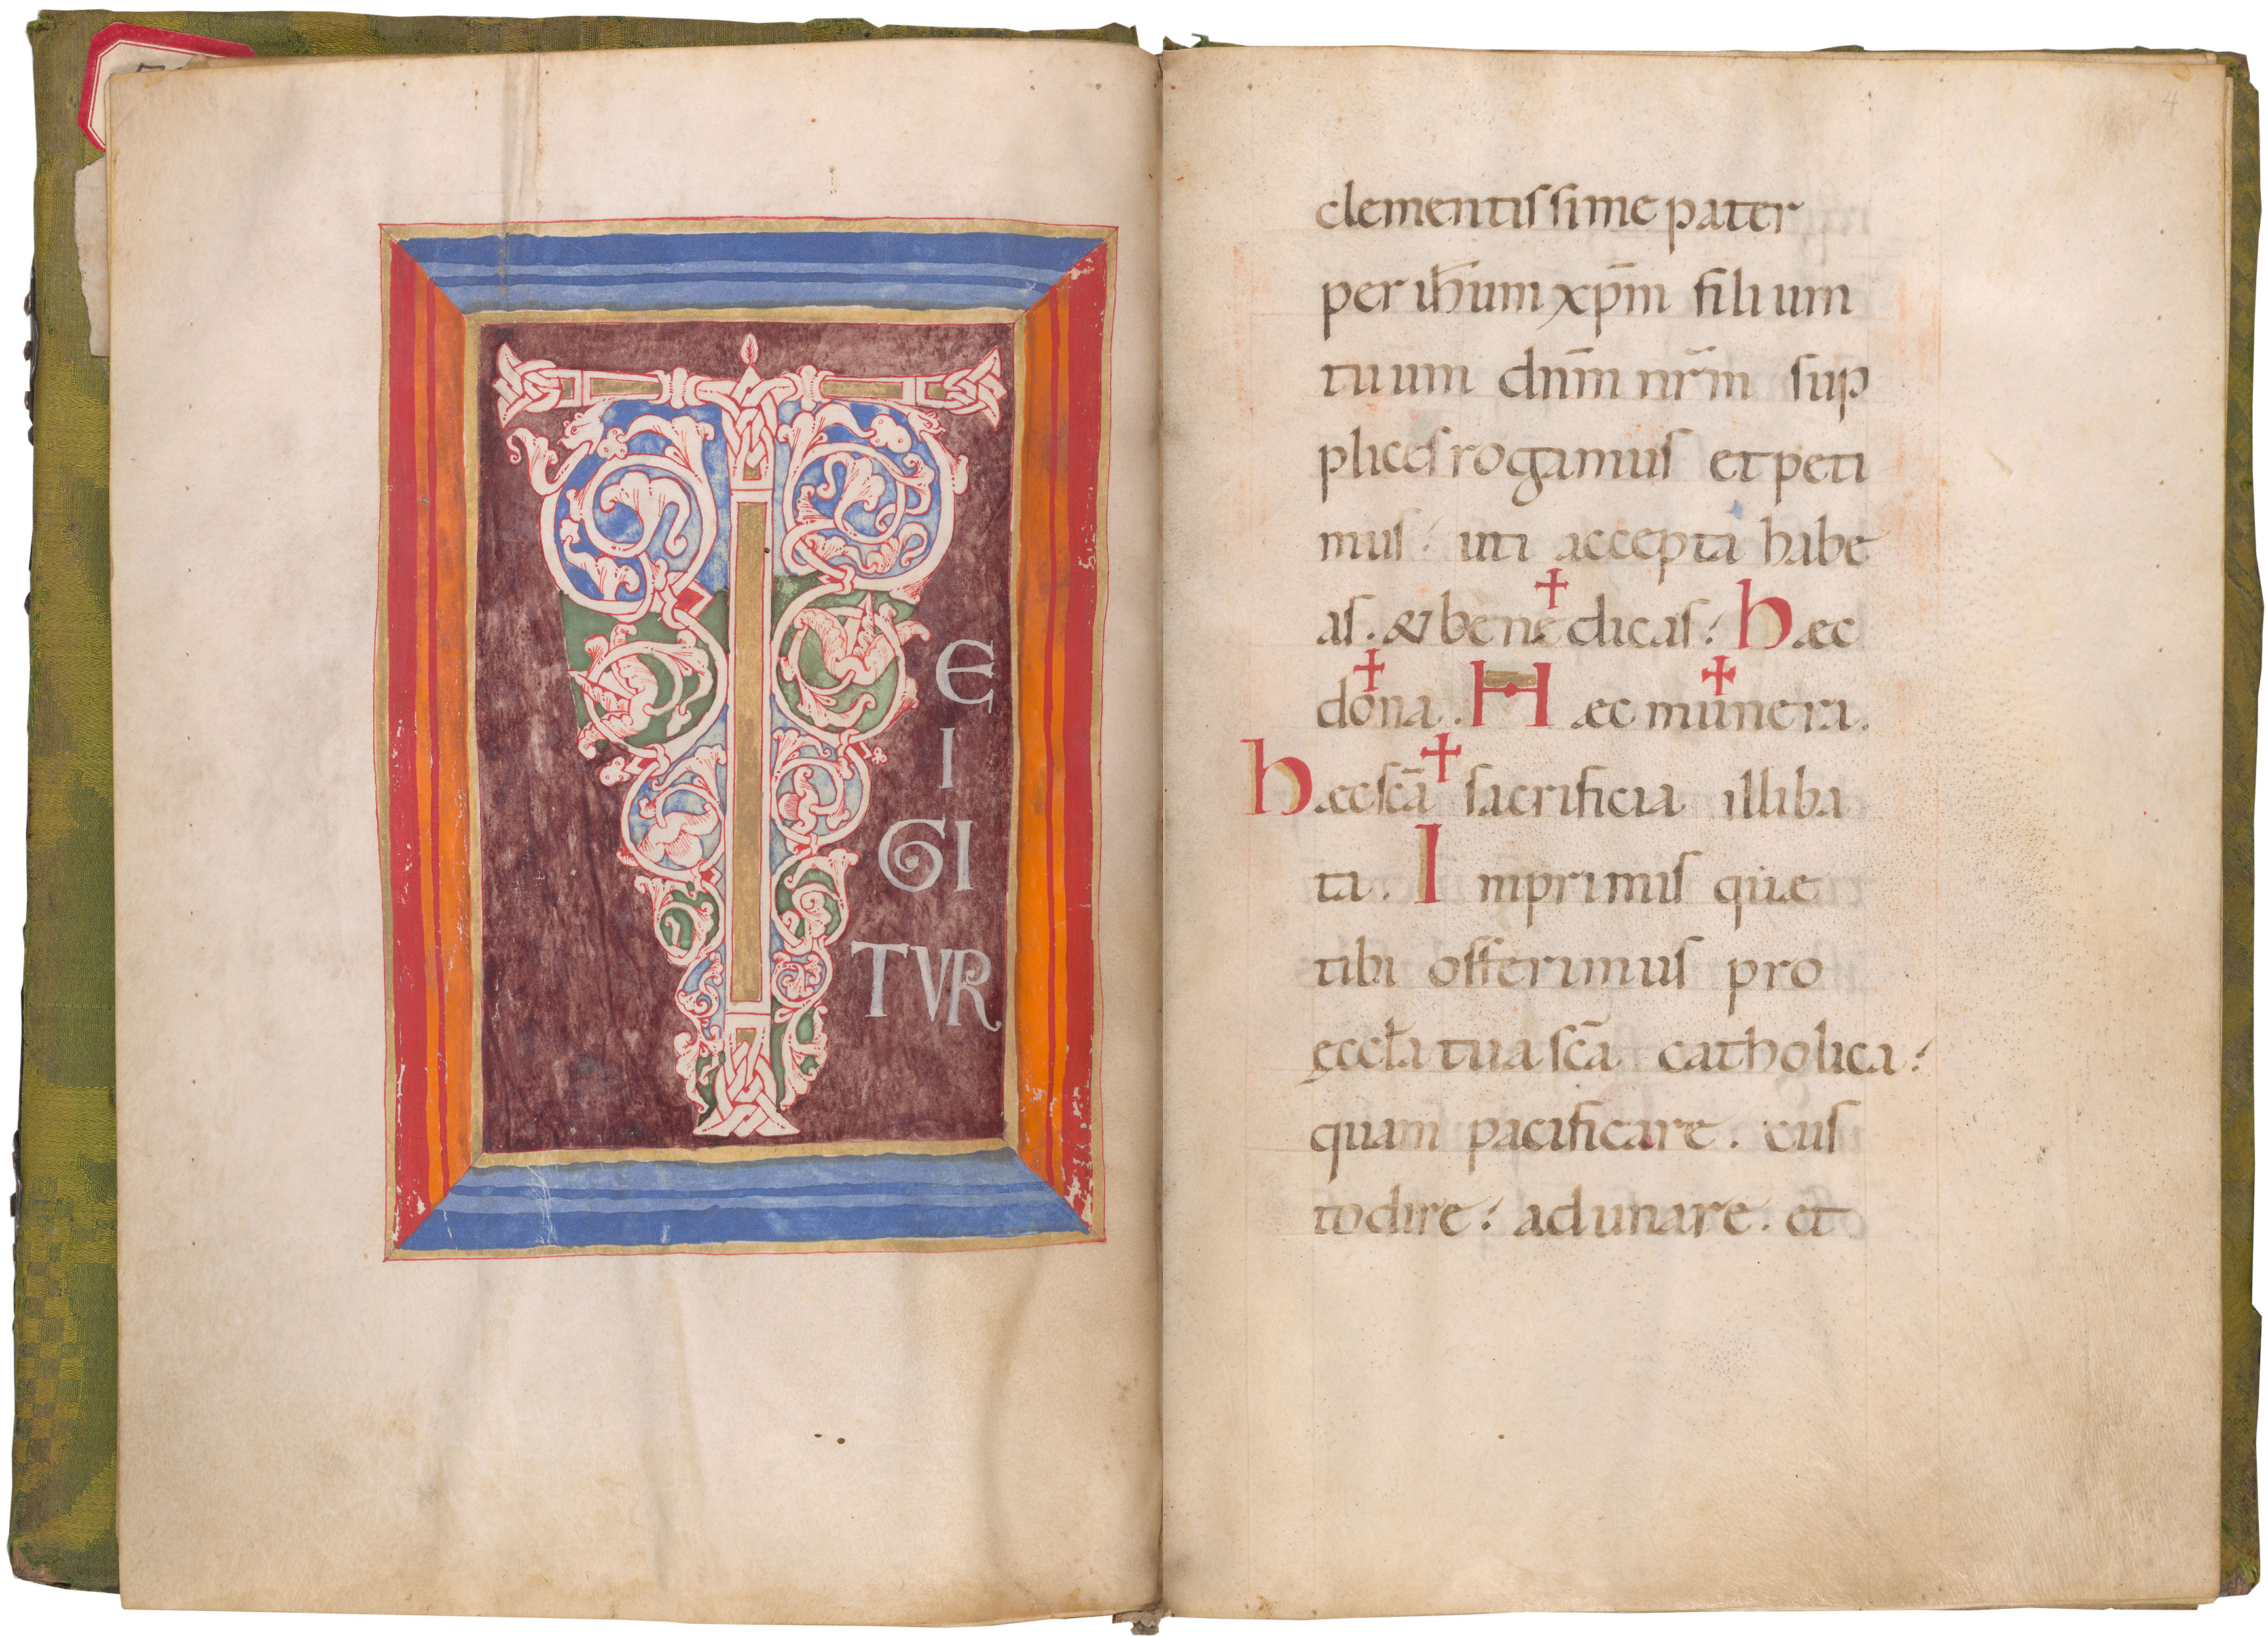 T
E
I
GI
TVR
4
clementissime pater
per ih̅um xp̅m filium
tuum dn̅m nr̅m sup
plices rogamus et peti
mus: uti accepta habe
as. & bene✝dicas: hæc
do✝na. Hæc mu✝nera.
hæc sc̅a ✝ sacrificia illiba
ta. Imprimis quæ
tibi offerimus pro
ęccl̅a tua sc̅a catholica:
quam pacificare. cus
todire: adunare. et